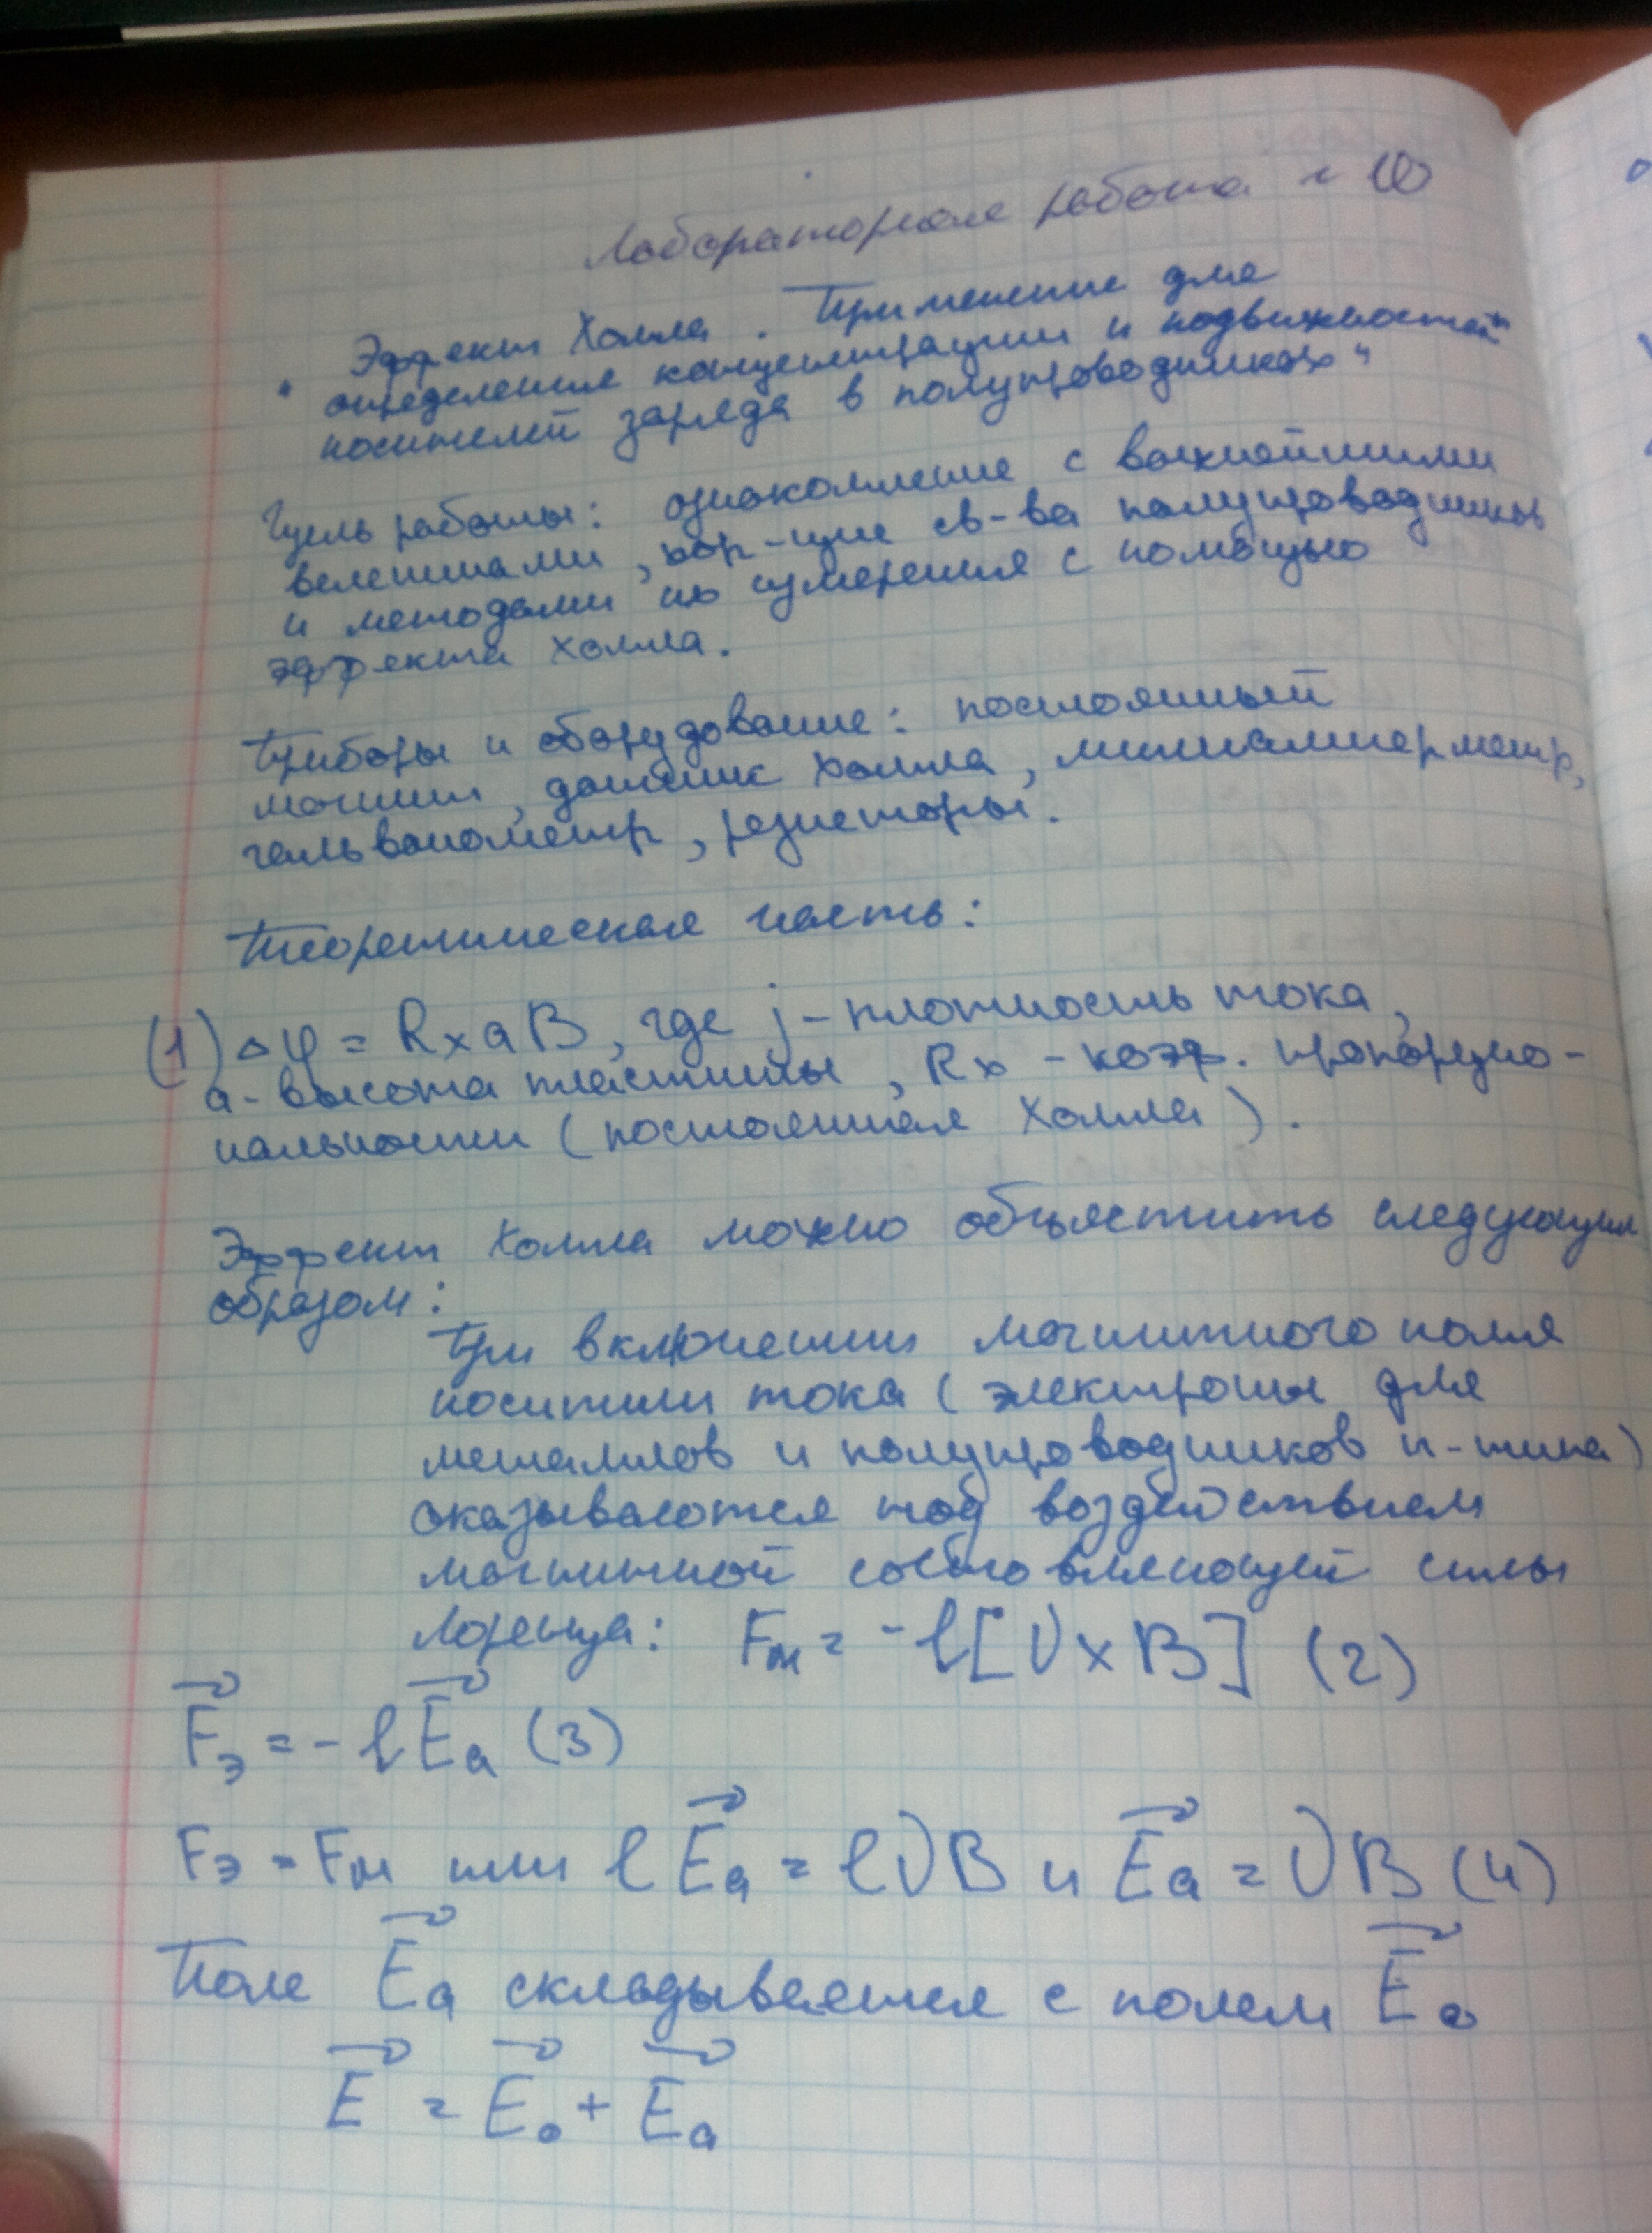 Лабораторная работа № 10
Эффект Холла. Применение для
"определения концентрации и подвижностей
носителей заряда в полупроводниках"
Цель работы: ознакомление с важнейшими
величинами, хар-щие св-ва полупроводников
и методами их измерения с помощью
эффекта Холла.
Приборы и оборудование: постоянный
магнит, датчик Холла, миллиамперметр,
гальванометр, резисторы.
Теоретическая часть:
(1) Δφ = Rx a B, где j - плотность тока,
a - высота пластины, Rx - коэф. пропорцио-
нальности (постоянная Холла).
Эффект Холла можно объяснить следующим
образом:
При включении магнитного поля
носители тока (электроны для
металлов и полупроводников n-типа)
оказываются под воздействием
магнитной составляющей силы
Лоренца: Fм = -e[V×B] (2)
F⃗э = -eE⃗a (3)
Fэ = Fм или eE⃗a = eVB и E⃗a = VB (4)
Поле E⃗a складывается с полем E⃗o
E⃗ = E⃗o + E⃗a